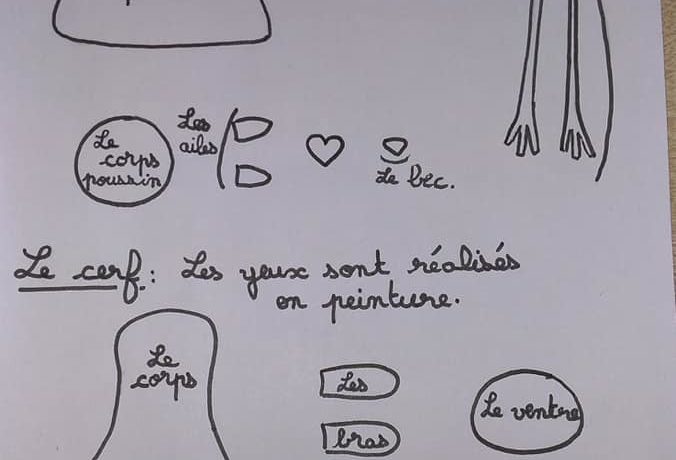 Le
corps
poussin
Les
ailes
Le bec.
Le cerf: Les yeux sont réalisés
en peinture.
Le
corps
Les
bras
Le ventre